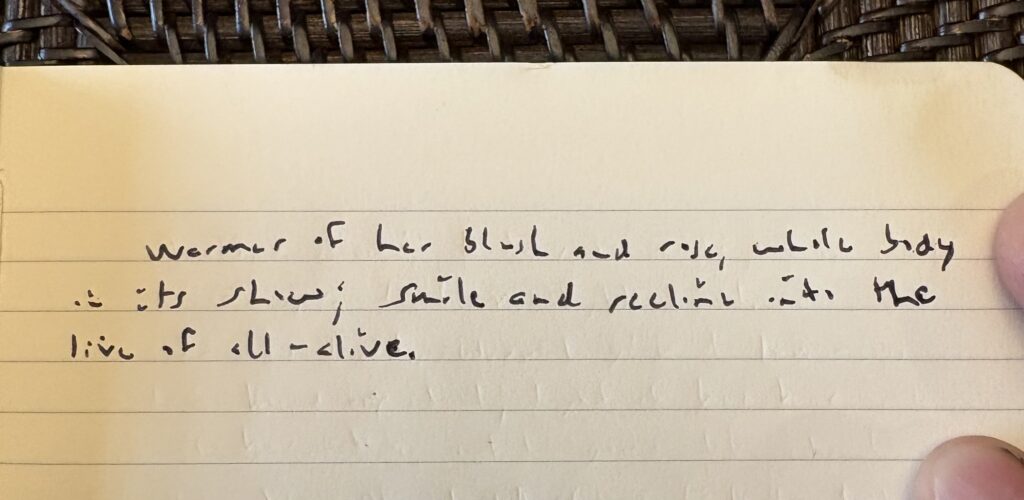 warmer of her blush and rose, whole body
in its show; smile and recline into the
live of all-alive.